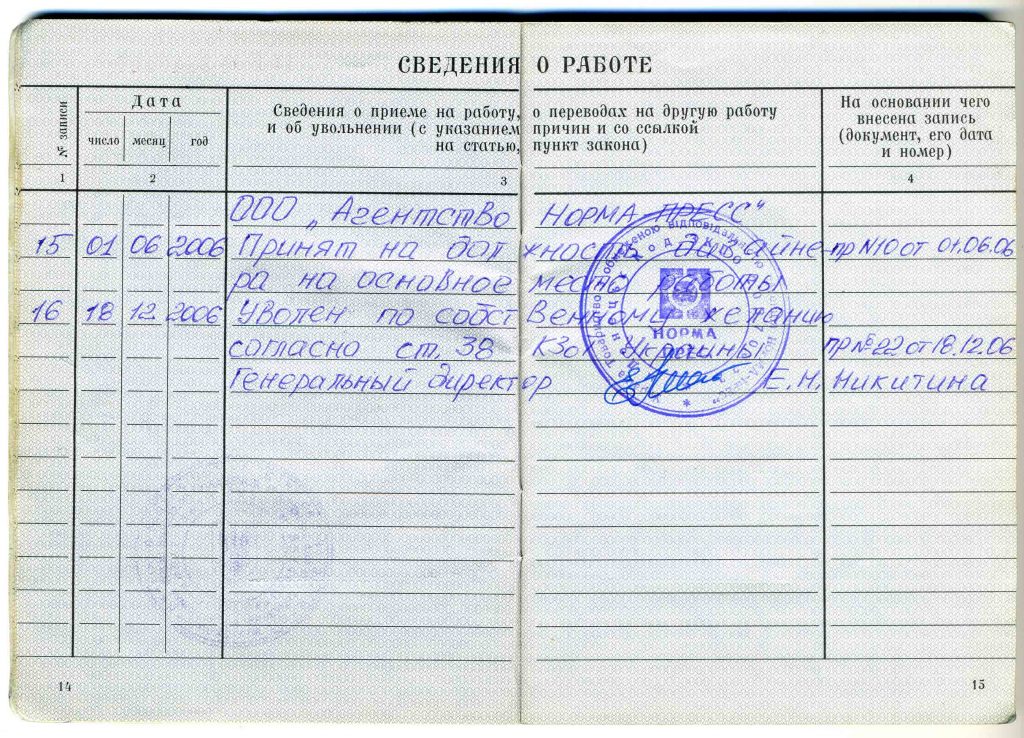 СВЕДЕНИЯ О РАБОТЕ
№ записи
Дата
число месяц год
Сведения о приеме на работу, о переводах на другую работу
и об увольнении (с указанием причин и со ссылкой
на статью, пункт закона)
На основании чего
внесена запись
(документ, его дата
и номер)
1 2 3 4
ООО „Агентство НОРМА ПРЕСС"
15 01 06 2006 Принят на должность дизайне- пр N10 от 01.06.06
ра на основное место работы
16 18 12 2006 Уволен по собственному желанию
согласно ст. 38 КЗоТ Украины пр №22 от 18.12.06
Генеральный директор Е.Н. Никитина
НОРМА
14 15